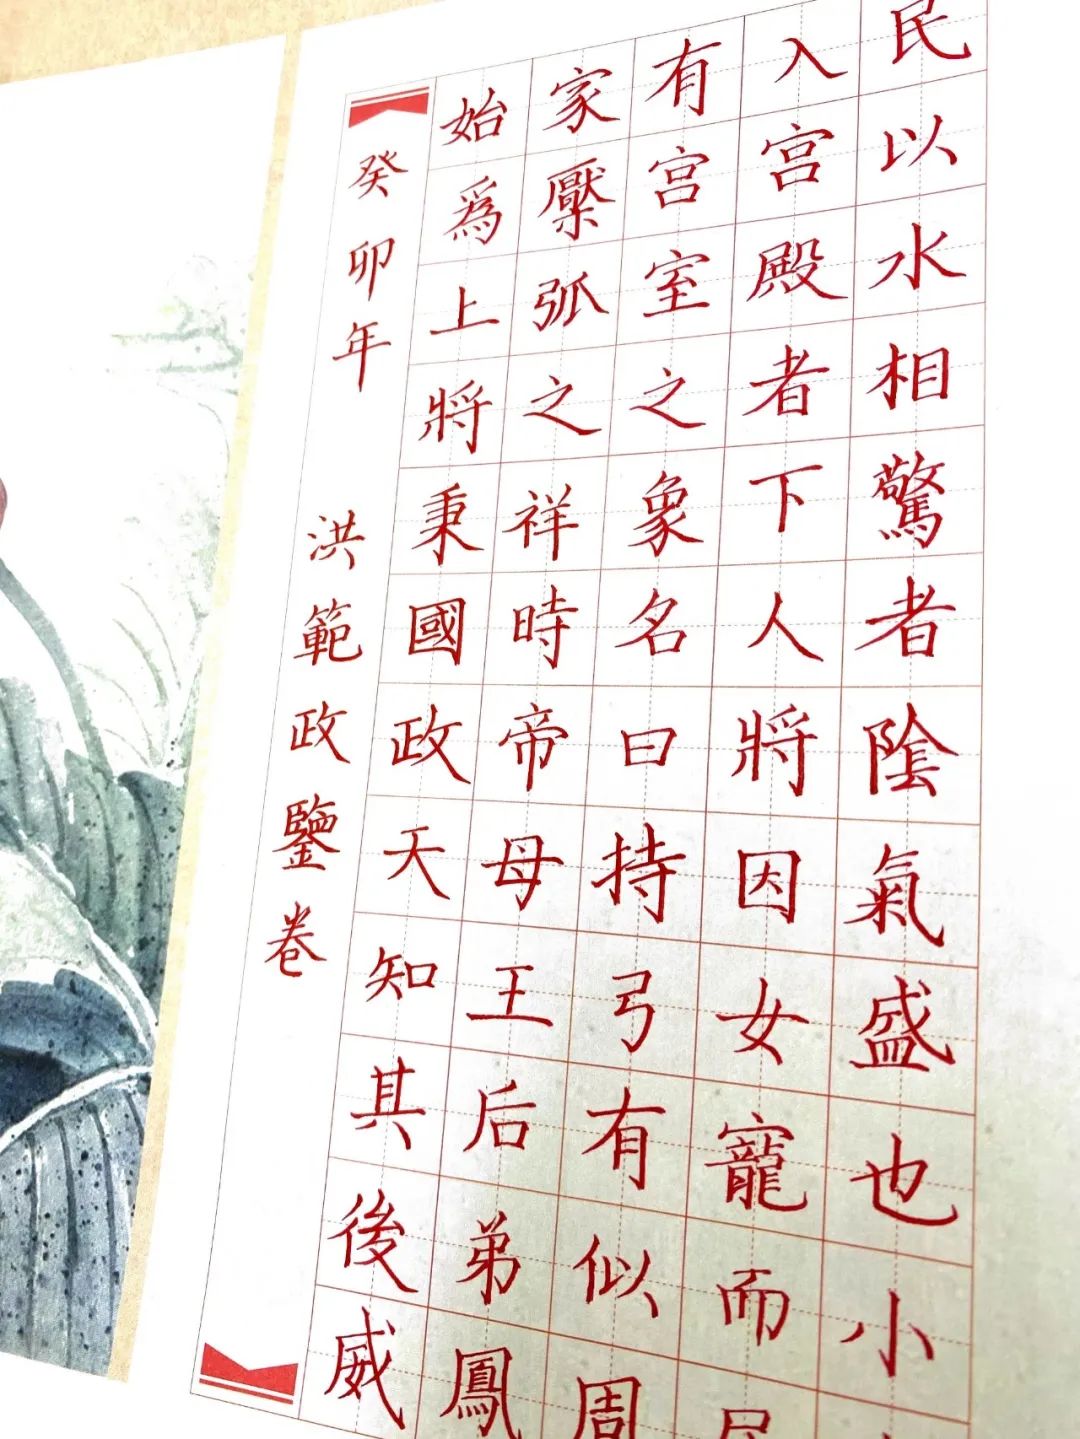 民以水相驚者陰氣盛也小
入宮殿者下人將因女寵而居
有宮室之象名曰持弓有似周
家檿弧之祥時帝母王后弟鳳
始為上將秉國政天知其後威
癸卯年 洪範政鑒卷